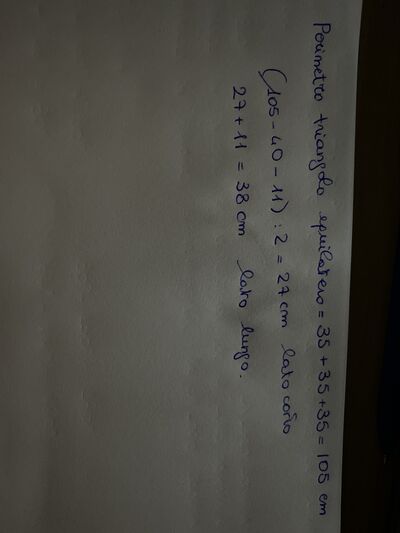 Perimetro triangolo equilatero = 35 + 35 + 35 = 105 cm
(105 - 40 - 11) : 2 = 27 cm lato corto
27 + 11 = 38 cm lato lungo.